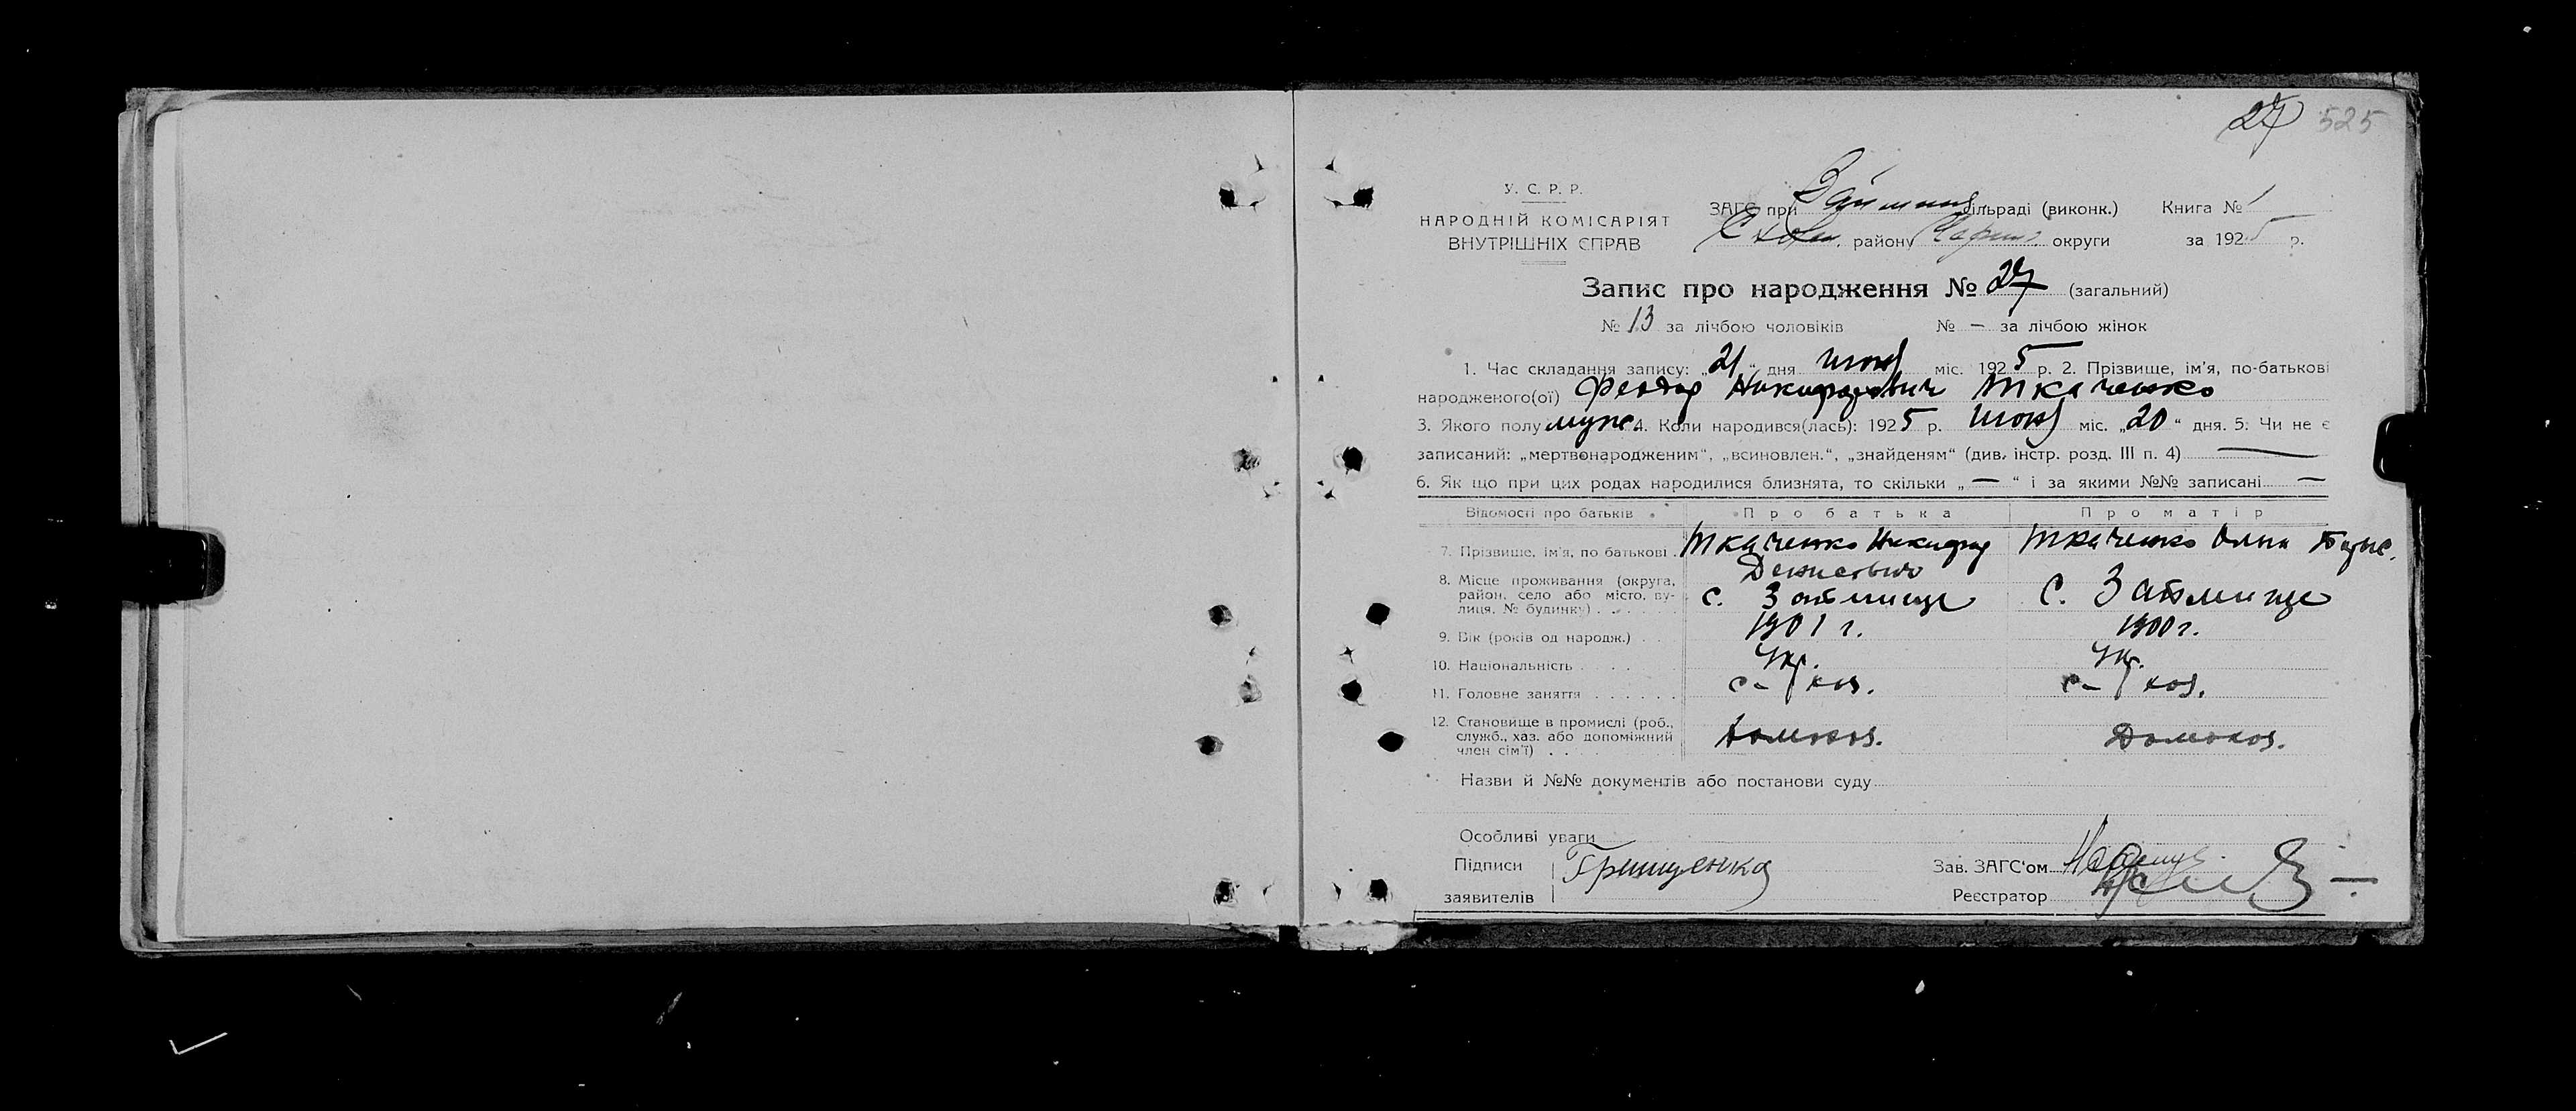 27 525
У. С. Р. Р.
НАРОДНІЙ КОМІСАРІЯТ
ВНУТРІШНІХ СПРАВ
ЗАГС при сільраді (виконк.) Книга № 1
району округи за 1925 р.
Запис про народження № 27 (загальний)
№ 13 за лічбою чоловіків № — за лічбою жінок
1. Час складання запису: „21“ дня міс. 1925 р. 2. Прізвище, ім'я, по-батькові
народженого(ої) Феодор Никифорович Ткаченко
3. Якого полу муж. 4. Коли народився(лась): 1925 р. міс. „20“ дня. 5. Чи не є
записаний: „мертвонародженим“, „всиновлен.“, „знайденям“ (див. інстр. розд. III п. 4) —
6. Як що при цих родах народилися близнята, то скільки „—“ і за якими №№ записані —
Відомості про батьків Про батька Про матір
7. Прізвище, ім'я, по батькові Ткаченко Никифор Денисович Ткаченко
8. Місце проживання (округа,
район, село або місто, ву-
лиця, № будинку) с. с.
9. Вік (років од народж.) 1901 г. 1900 г.
10. Національність Укр. Укр.
11. Головне заняття
12. Становище в промислі (роб.,
служб., хаз. або допоміжний
член сім'ї) Домохоз. Домохоз.
Назви й №№ документів або постанови суду
Особливі уваги
Підписи Грищенко Зав. ЗАГС'ом
заявителів Реєстратор